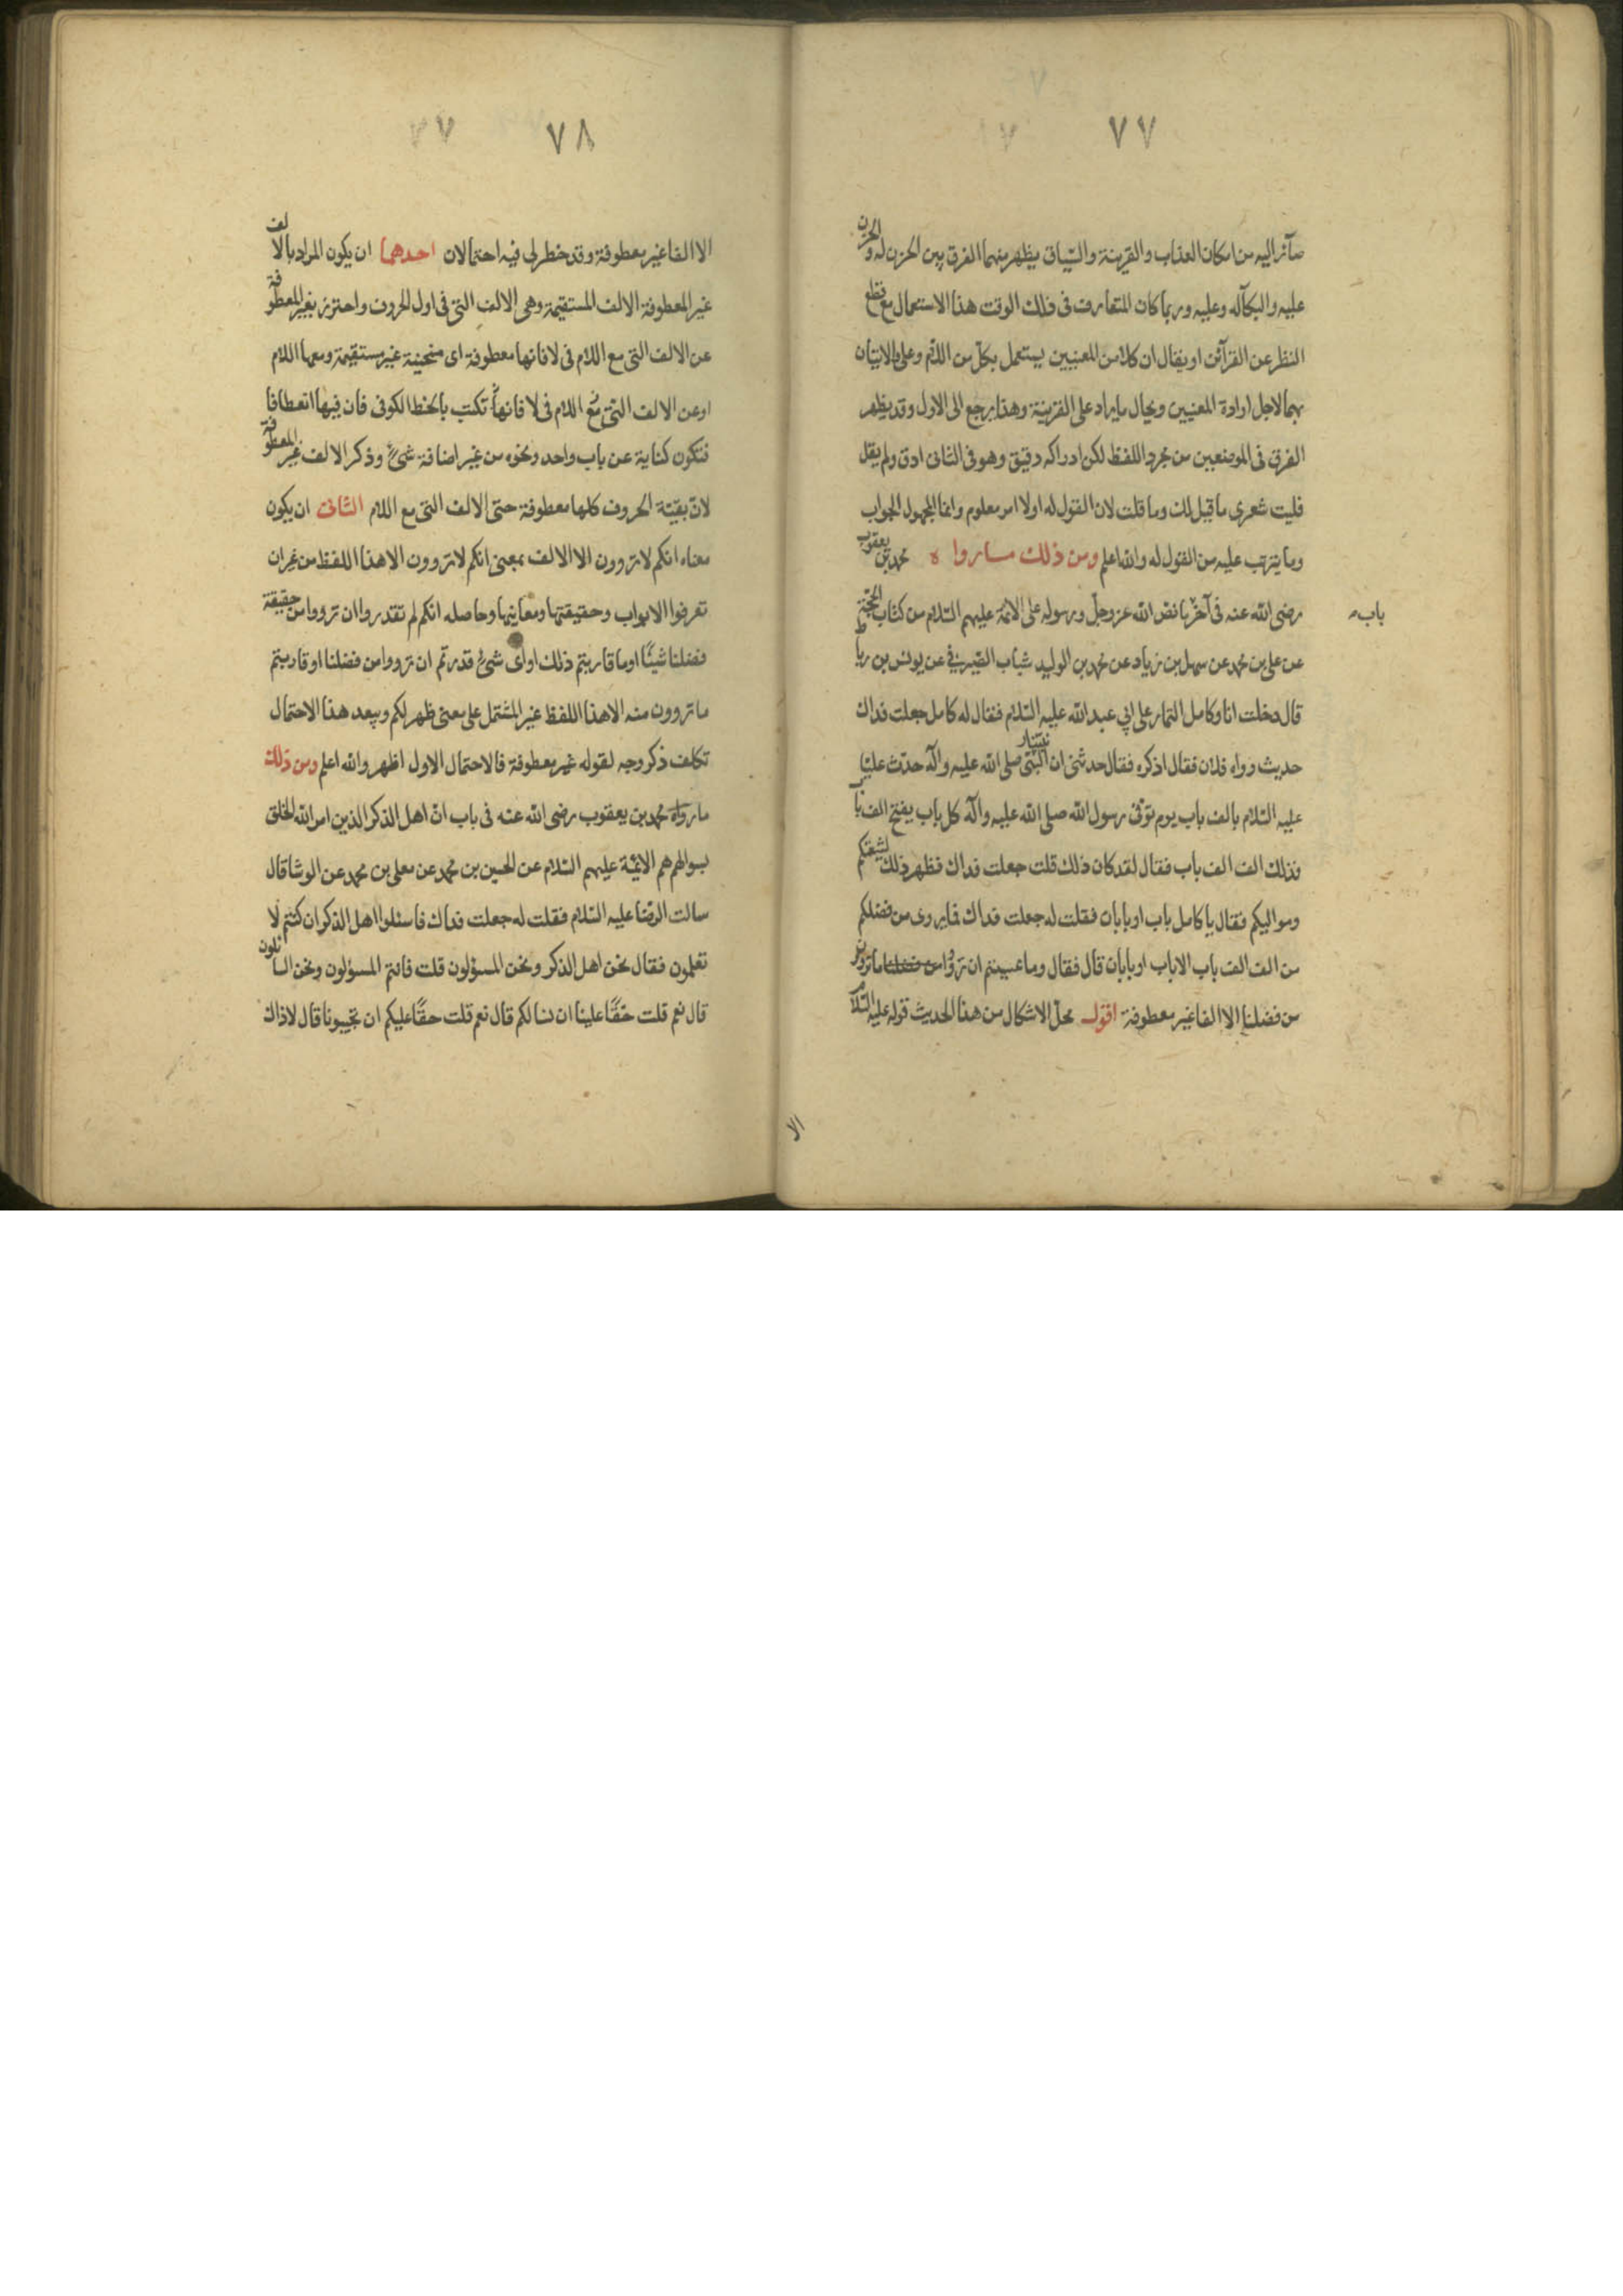 ٧٧
صائر اليه من امكان العذاب والقرينة والسّياق يظهر منهما الفرق بين الحزن له والحزن
عليه والبكآله وعليه وربما كان المتعارف فى ذلك الوقت هذا الاستعمال مع قطع
النظر عن القرآئن او يقال ان كلا من المعنيين يستعمل بكل من اللام وعلى والاتيان
بهما لاجل ارادة المعنيين ويحال مايراد على القرينة وهذا يرجع الى الاول وقد يظهر
الفرق فى الموضعين من مجرد اللفظ لكن ادراكه دقيق وهو فى الثانى ادق ولم يقل
فليت شعرى ما قيل لك وما قلت لان القول له اولا امر معلوم وانما المجهول الجواب
وما يترتب عليه من القول له والله اعلم ومن ذلك ماروا ه محمد بن يعقوب
باب
رضى الله عنه فى آخر ما نص الله عز وجل ورسوله على الائمة عليهم السّلام من كتاب الحجّة
عن على بن محمد عن سهل بن زياد عن محمد بن الوليد شباب الصّيرفى عن يونس بن رباط
قال دخلت انا وكامل التمار على ابى عبد الله عليه السّلام فقال له كامل جعلت فداك
حديث رواه فلان فقال اذكره فقال حدثنى ان النّبى صلى الله عليه وآله حدّث عليّا
عليه السّلام بالف باب يوم توفّى رسول الله صلى الله عليه وآله كل باب يفتح الف باب
فذلك الف الف باب فقال لقد كان ذلك قلت جعلت فداك فظهر ذلك لشيعتكم
ومواليكم فقال يا كامل باب او بابان فقلت له جعلت فداك فما يروى من فضلكم
من الف الف باب الا باب او بابان قال فقال وما عسيتم ان ترووا من فضلنا ما تروون
من فضلنا الا الفا غير معطوفة اقول محل الاشكال من هذا الحديث قوله عليه السّلام
الا
٧٨
الا الفا غير معطوفة وقد خطر لى فيه احتمالان احدهما ان يكون المراد بالالف
غير المعطوفة الالف المستقيمة وهى الالف التى فى اول الحروف واحترز بغير المعطوفة
عن الالف التى مع اللام فى لا فانها معطوفة اى منحنية غير مستقيمة ومعها اللام
او عن الالف التى مع اللام فى لا فانها تكتب بالخط الكوفى فان فيها انعطافا
فتكون كناية عن باب واحد ونحوه من غير اضافة شىء وذكر الالف غير المعطوفة
لانّ بقيّة الحروف كلها معطوفة حتى الالف التى مع اللام الثانى ان يكون
معناه انكم لا تروون الا الالف بمعنى انكم لا تروون الا هذا اللفظ من غير ان
تعرفوا الابواب وحقيقتها ومعانيها وحاصله انكم لم تقدروا ان ترووا من حقيقة
فضلنا شيئًا او ما قاربتم ذلك او اى شىء قدرتم ان ترووا من فضلنا او قاربتم
ما تروون منه الا هذا اللفظ غير المشتمل على معنى ظهر لكم ويبعد هذا الاحتمال
تكلف ذكر وجه لقوله غير معطوفة فالاحتمال الاول اظهر والله اعلم ومن ذلك
مارواه محمد بن يعقوب رضى الله عنه فى باب انّ اهل الذكر الذين امر الله الخلق
بسوالهم هم الائمّة عليهم السّلام عن الحسين بن محمد عن معلى بن محمد عن الوشا قال
سالت الرضا عليه السّلام فقلت له جعلت فداك فاسئلوا اهل الذكر ان كنتم لا
تعلمون فقال نحن اهل الذكر ونحن المسؤلون قلت فانتم المسؤلون ونحن السائلون
قال نعم قلت حقّا علينا ان نسالكم قال نعم قلت حقّا عليكم ان تجيبونا قال لا ذاك